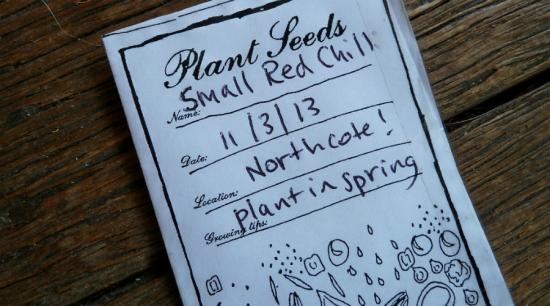 Plant Seeds
Name: Small Red Chilli
Date: 11/3/13
Location: Northcote!
Growing tips: Plant in spring